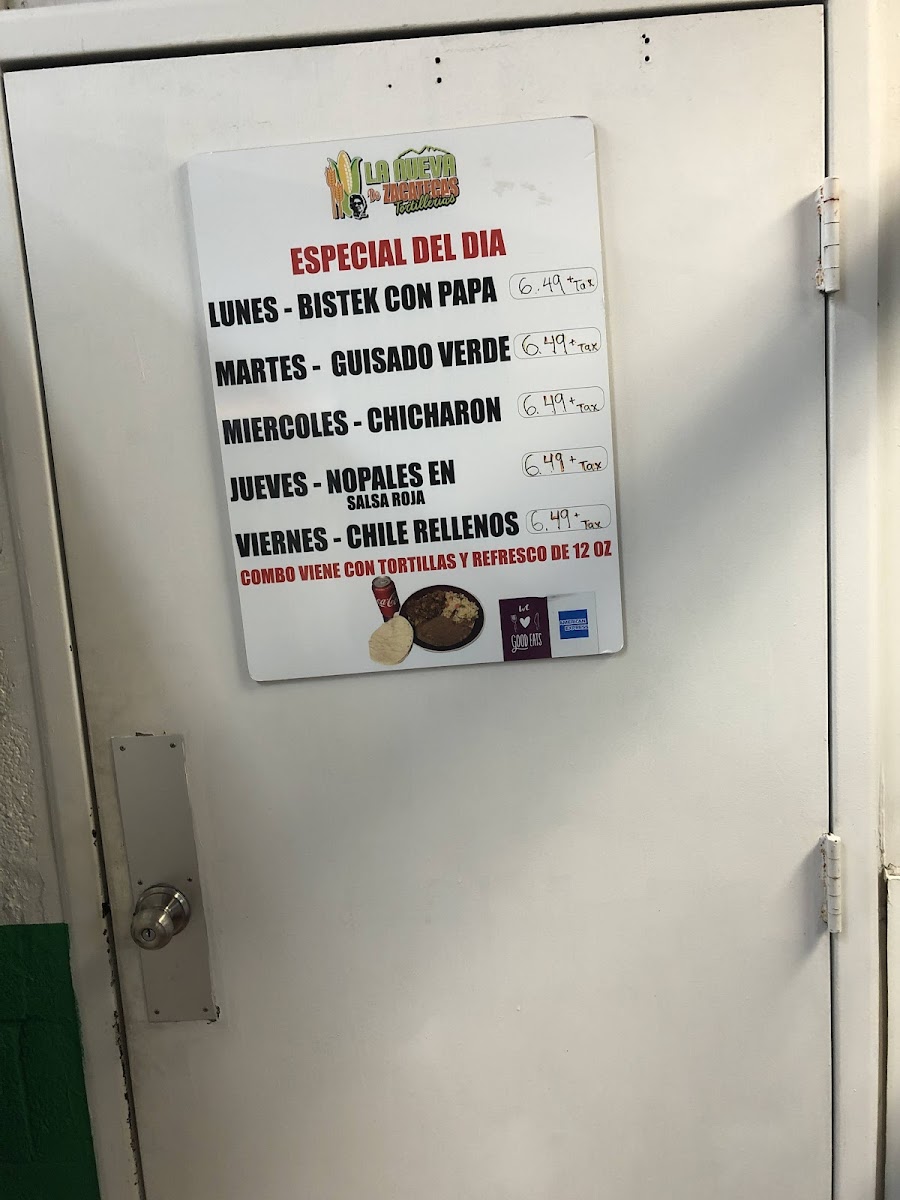 LA NUEVA
De ZACATECAS
Tortillerias
ESPECIAL DEL DIA
LUNES - BISTEK CON PAPA 6.49 + Tax
MARTES - GUISADO VERDE 6.49 + Tax
MIERCOLES - CHICHARON 6.49 + Tax
JUEVES - NOPALES EN 6.49 + Tax
SALSA ROJA
VIERNES - CHILE RELLENOS 6.49 + Tax
COMBO VIENE CON TORTILLAS Y REFRESCO DE 12 OZ
we
GOOD EATS
AMERICAN
EXPRESS